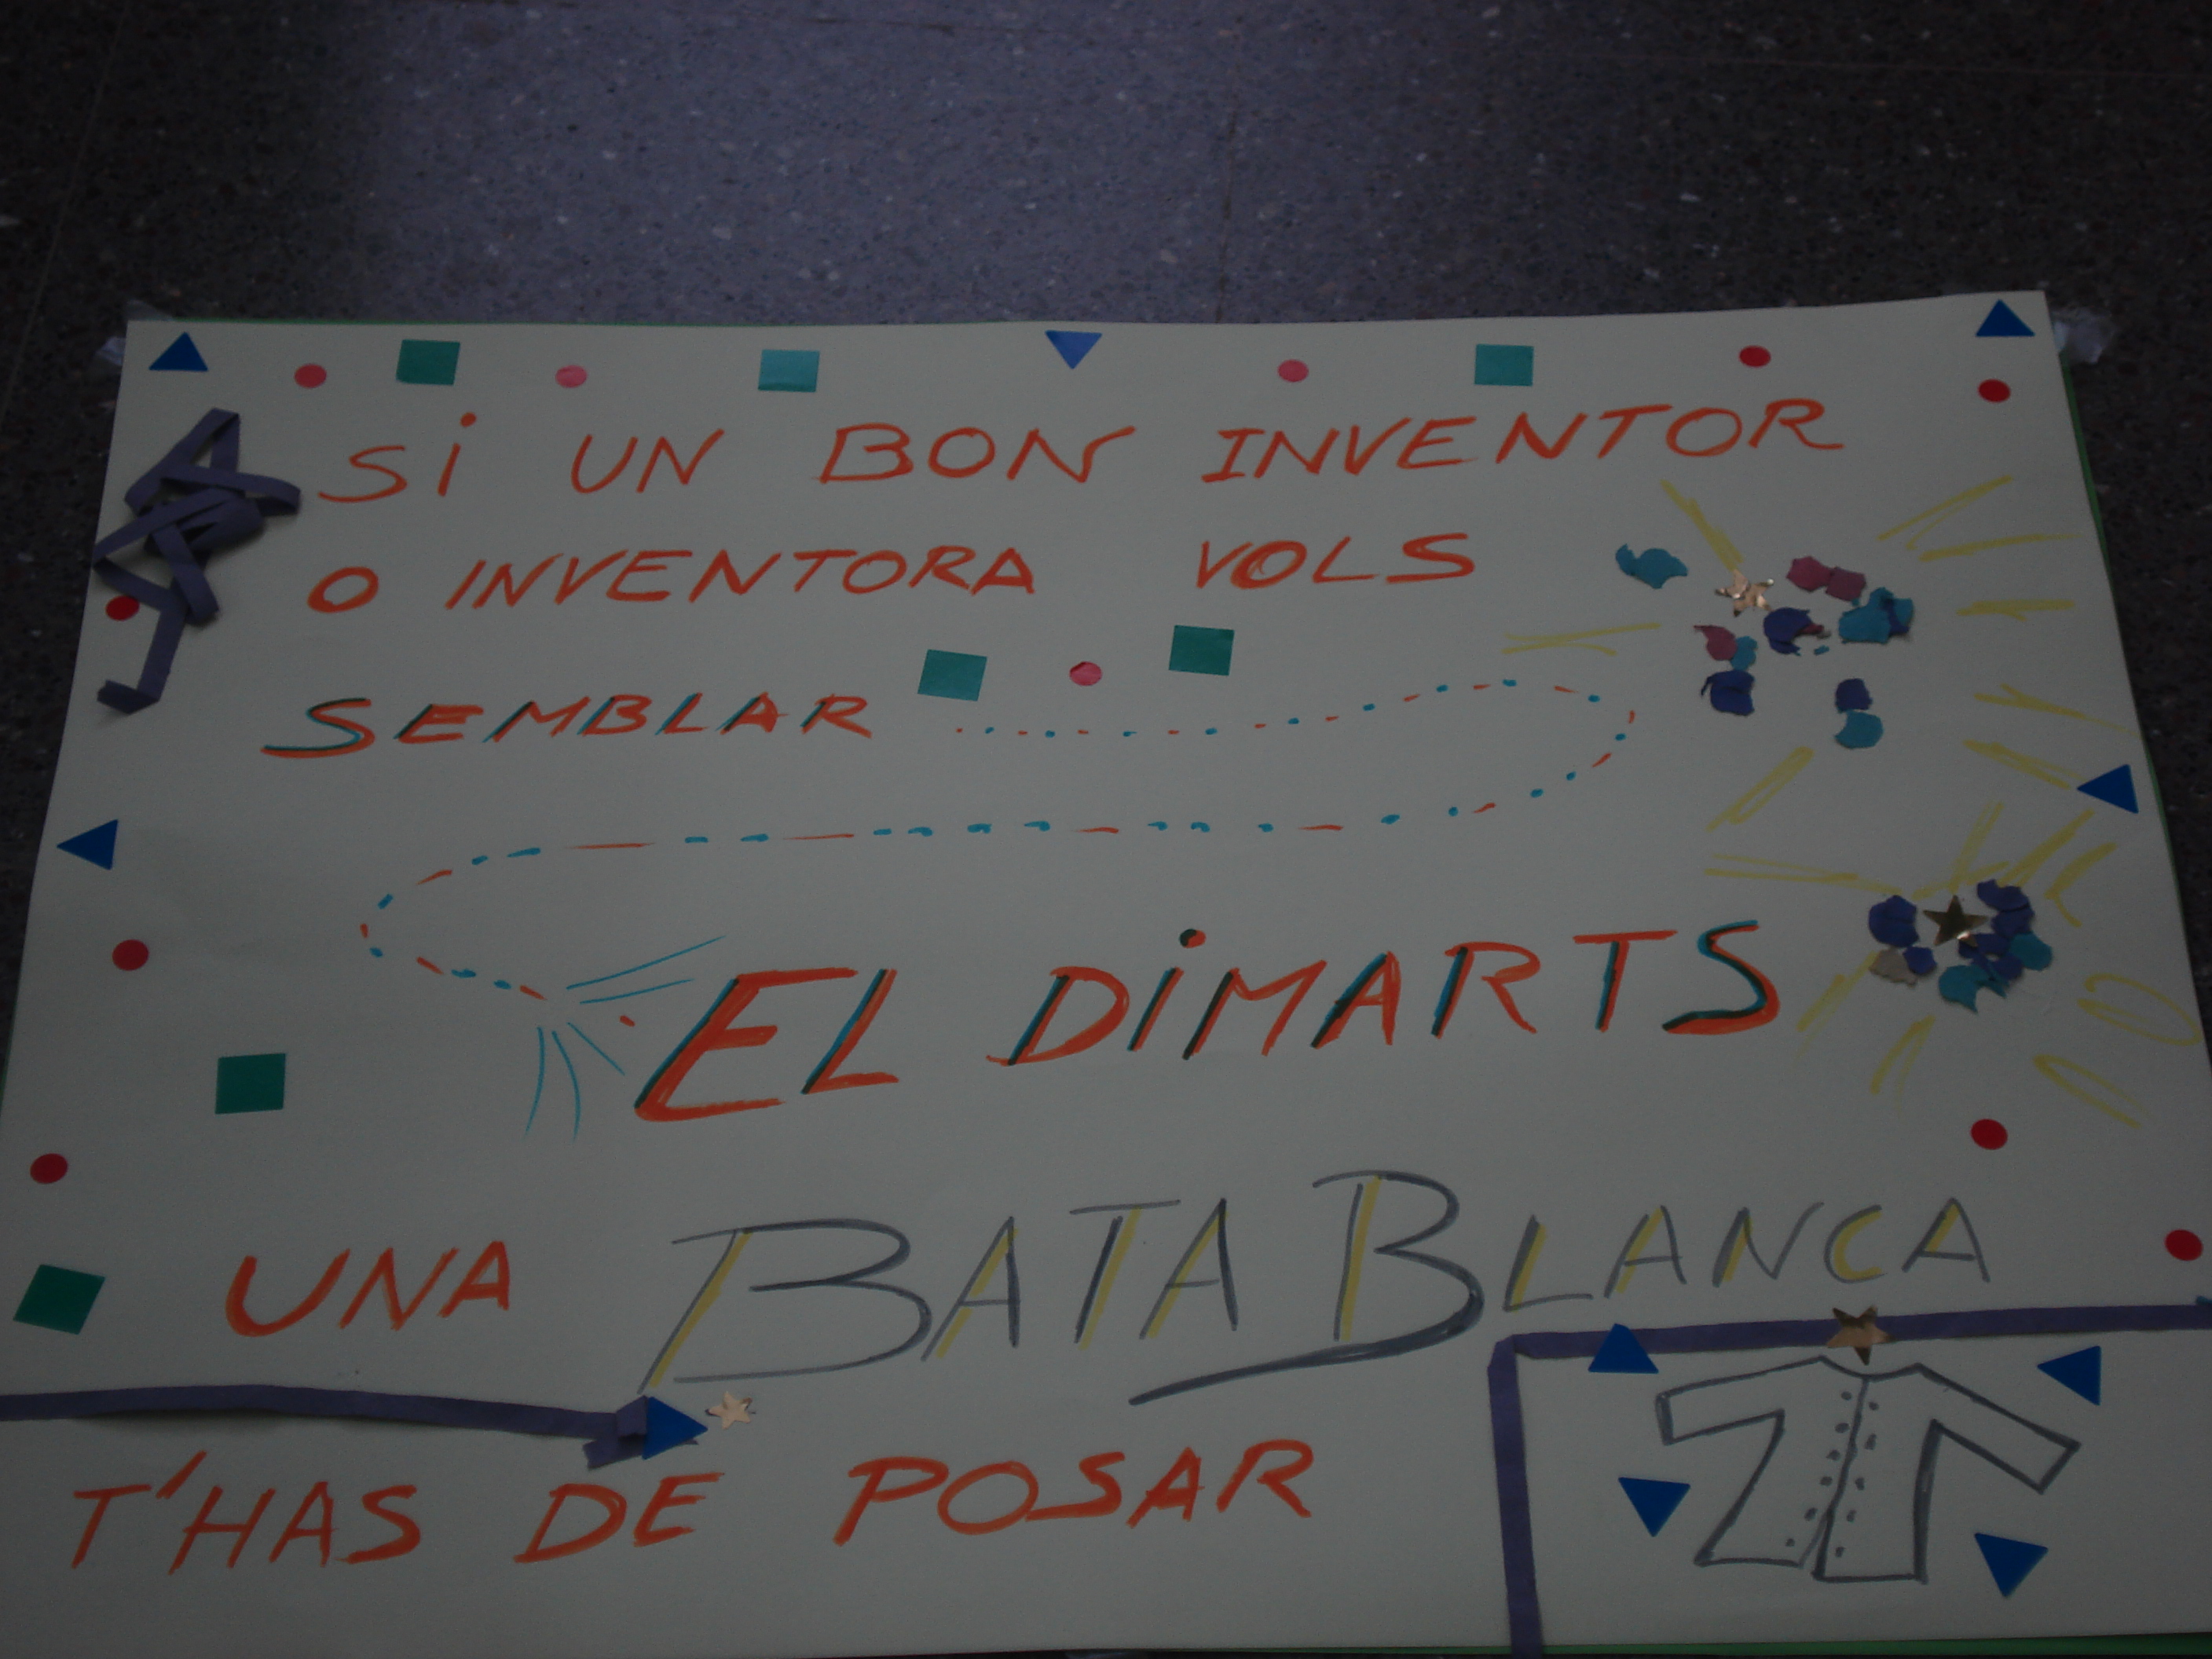 Si UN BON INVENTOR
O INVENTORA VOLS
SEMBLAR
EL DiMARTS
UNA BATA BLANCA
T'HAS DE POSAR